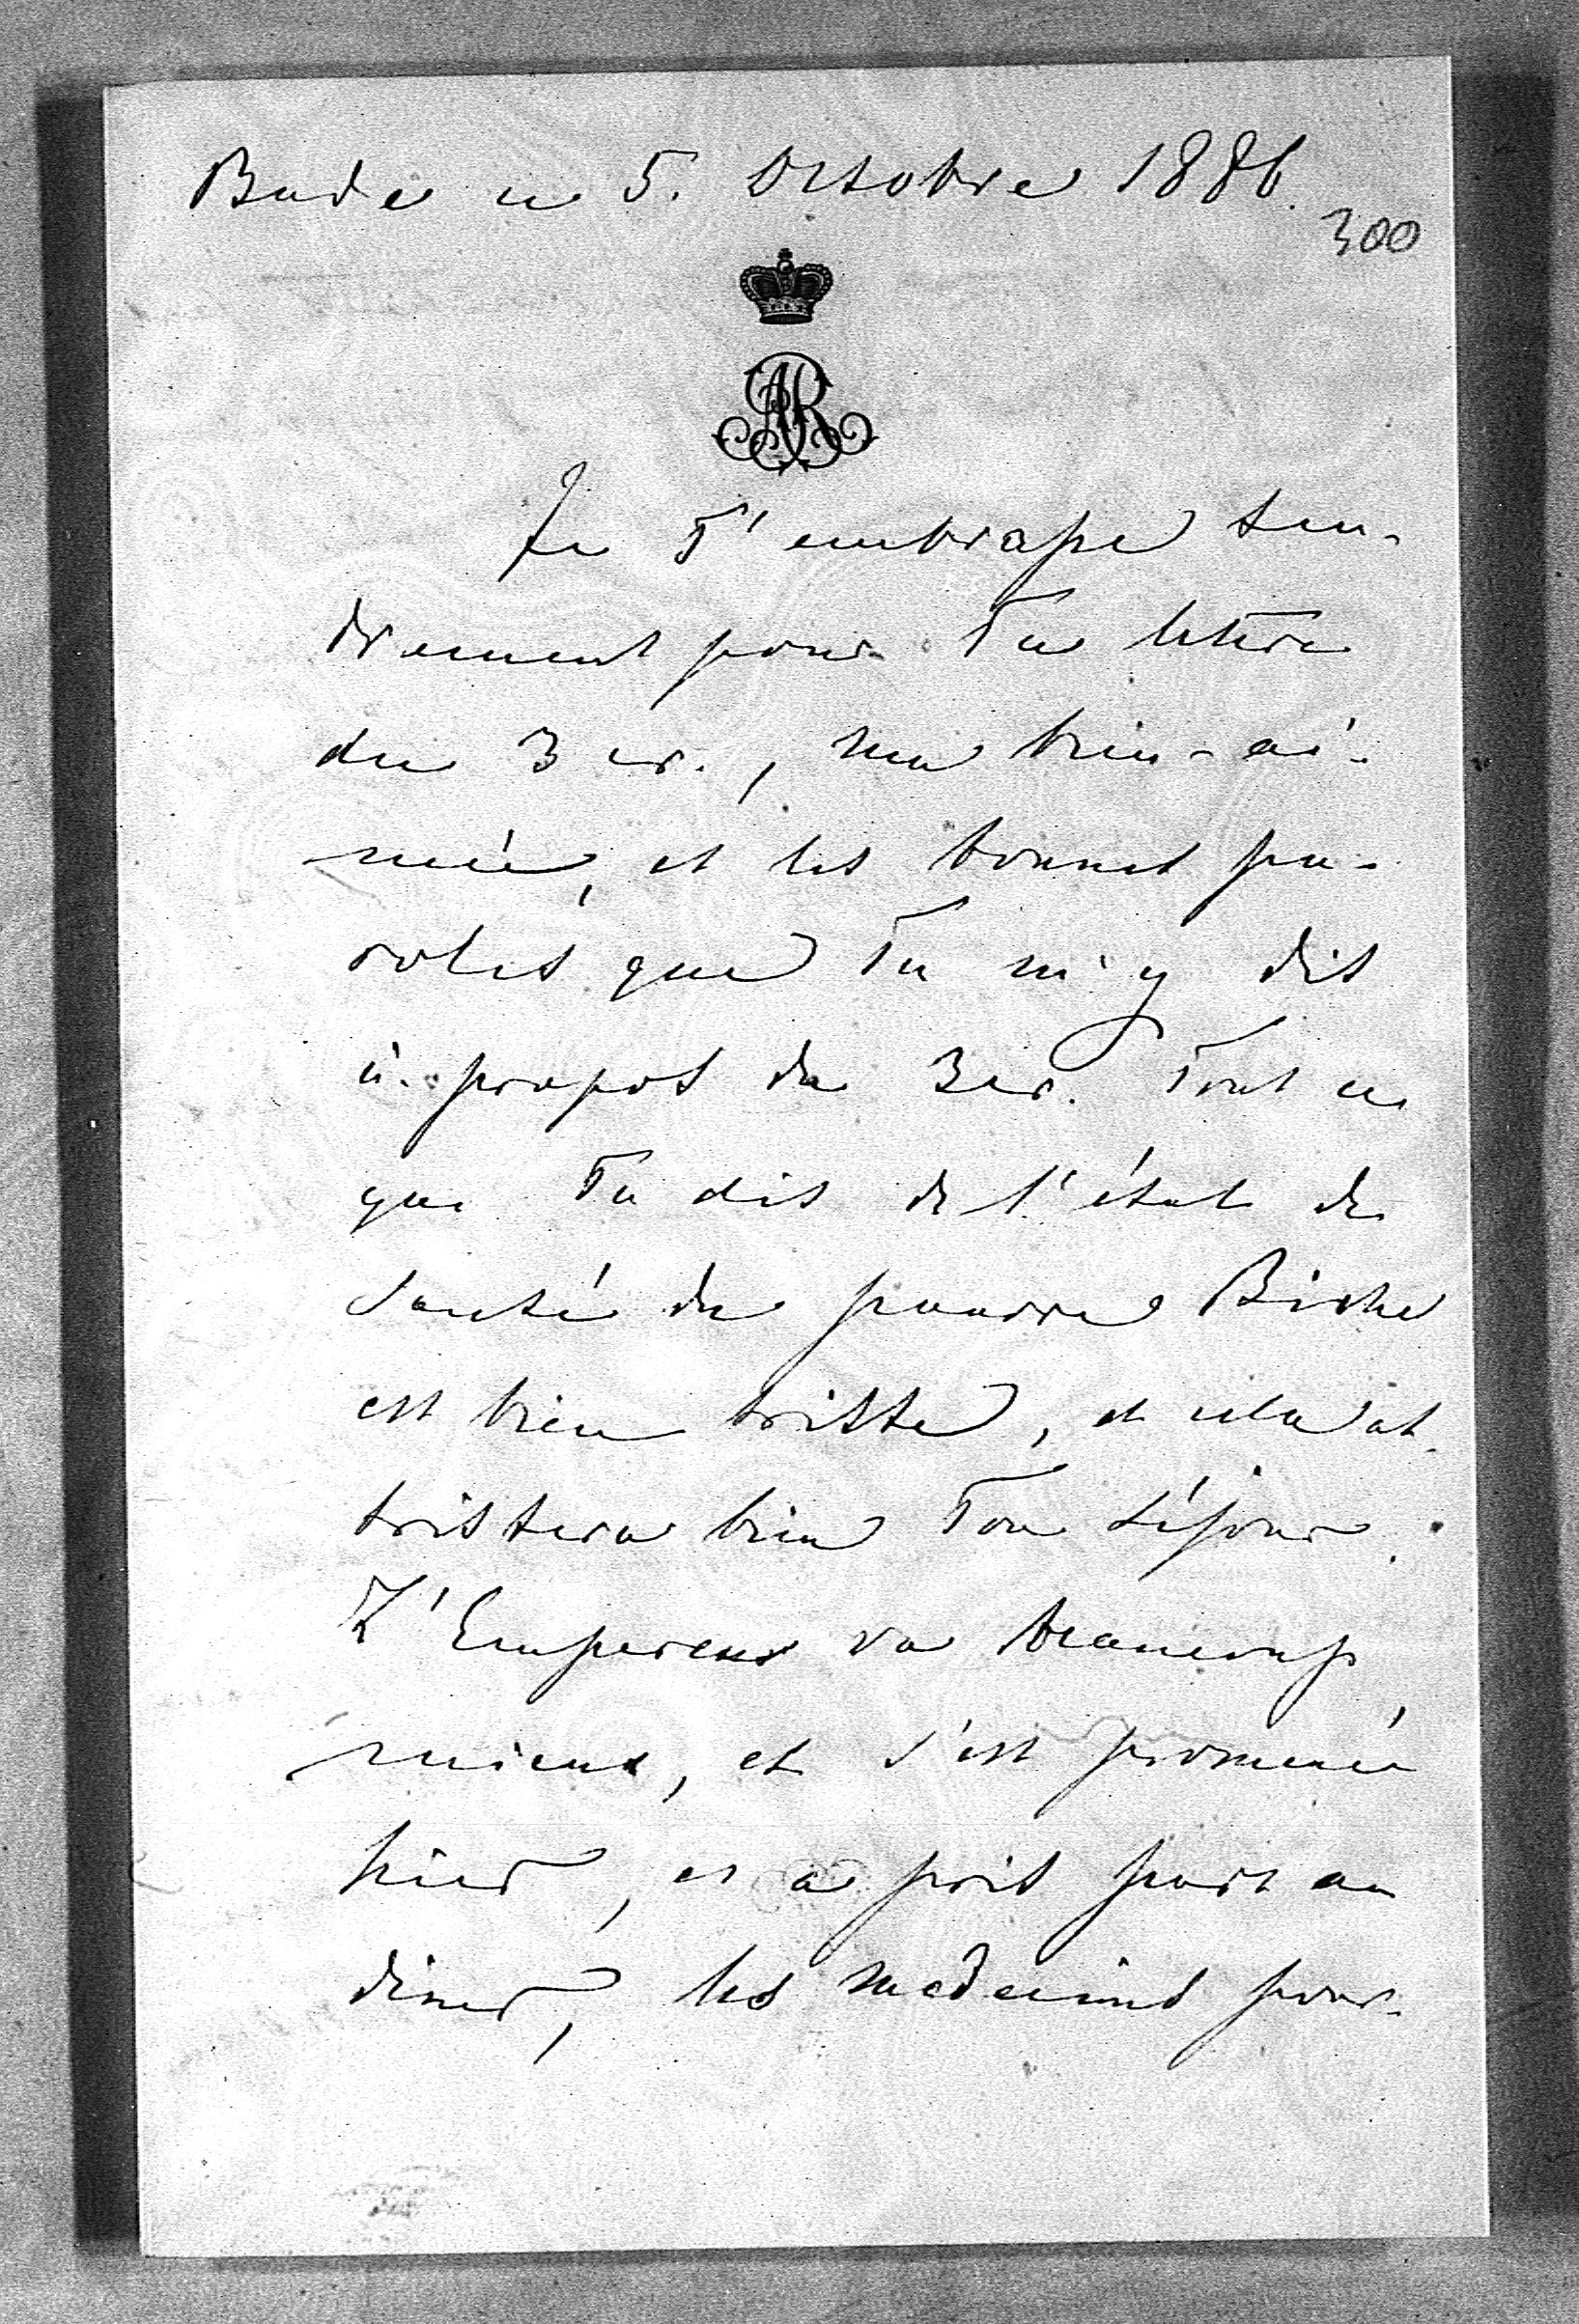 Bade ce 5. Octobre 1886.
300
AR
Je T'embrasse ten-
drement pour Ta lettre
du 3 cr., ma bien-ai-
mée, et les bonnes pa-
roles que Tu m'y dis
à propos du 3 cr. Tout ce
que Tu dis de l'état de
santé de pauvre Biche
est bien triste, et cela at-
tristera bien Ton séjour.
L'Empereur va beaucoup
mieux, et s'est promené
hier, et a pris part au
diner, les medecins pour-